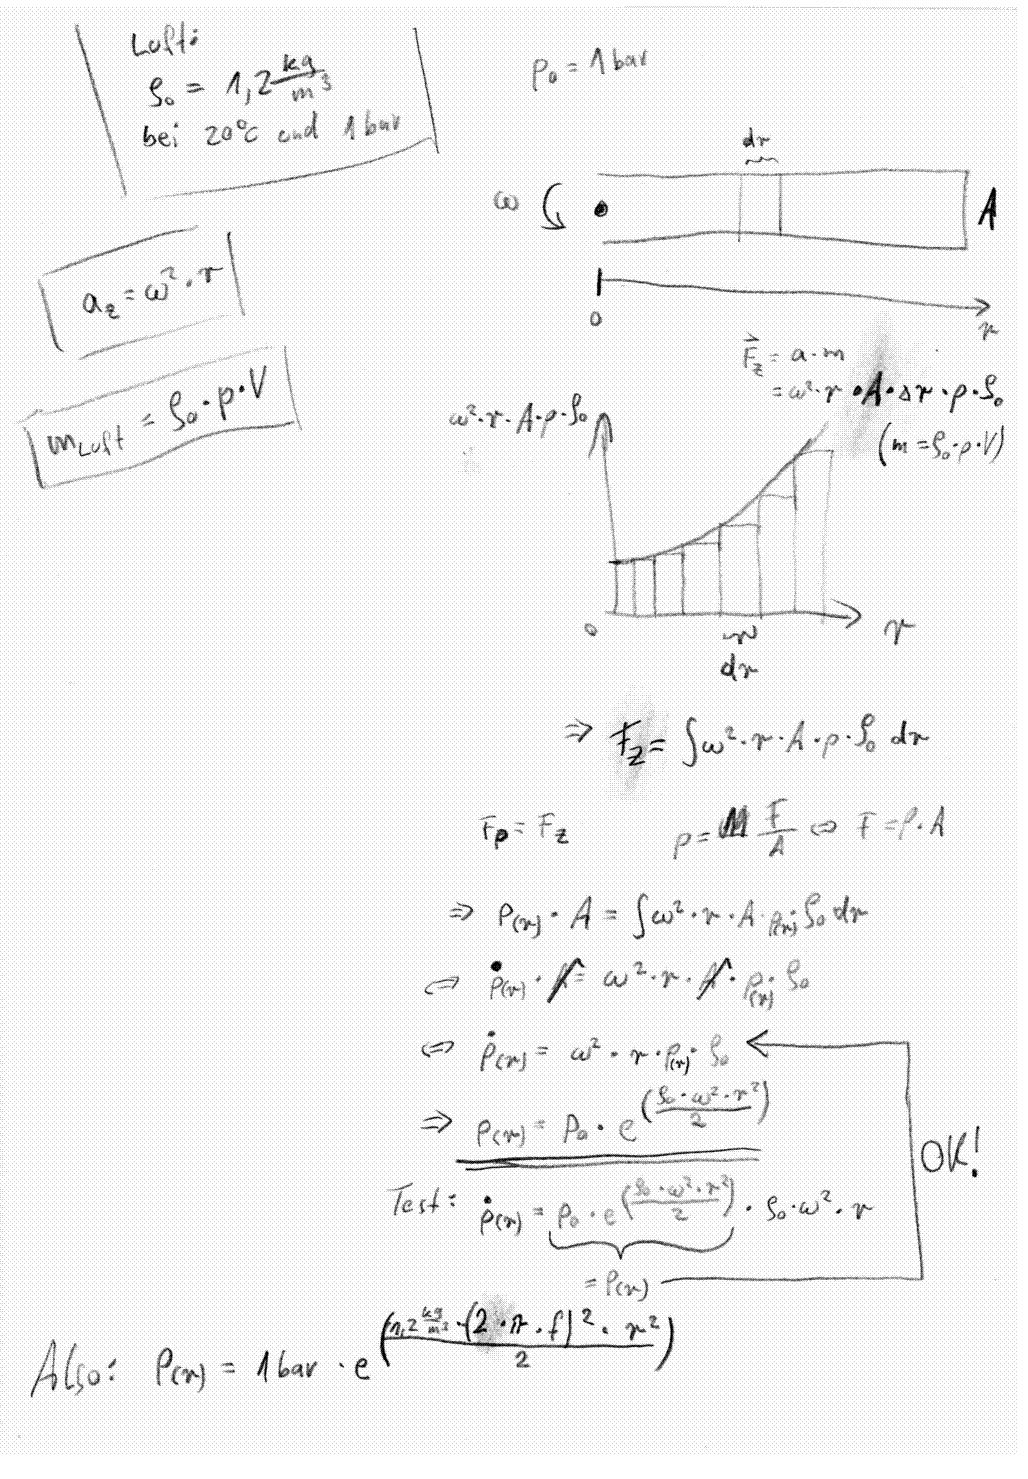 Luft:
ρ₀ = 1,2 kg/m³
bei 20°C und 1 bar
a_z = ω² · r
m_Luft = ρ₀ · p · V
p₀ = 1 bar
dr
ω
A
0
r
F⃗_z = a · m
= ω² · r · A · Δr · p · ρ₀
(m = ρ₀ · p · V)
ω² · r · A · p · ρ₀
0
r
dr
⇒ F_z = ∫ω² · r · A · p · ρ₀ dr
F_p = F_z
p = F/A ⇔ F = p · A
⇒ p(r) · A = ∫ω² · r · A · p(r) · ρ₀ dr
⇔ ṗ(r) · A = ω² · r · A · p(r) · ρ₀
⇔ ṗ(r) = ω² · r · p(r) · ρ₀
⇒ p(r) = p₀ · e^(ρ₀ · ω² · r²/2)
OK!
Test: ṗ(r) = p₀ · e^(ρ₀ · ω² · r²/2) · ρ₀ · ω² · r
= p(r)
Also: p(r) = 1 bar · e^(1,2 kg/m³ · (2 · π · f)² · r²/2)